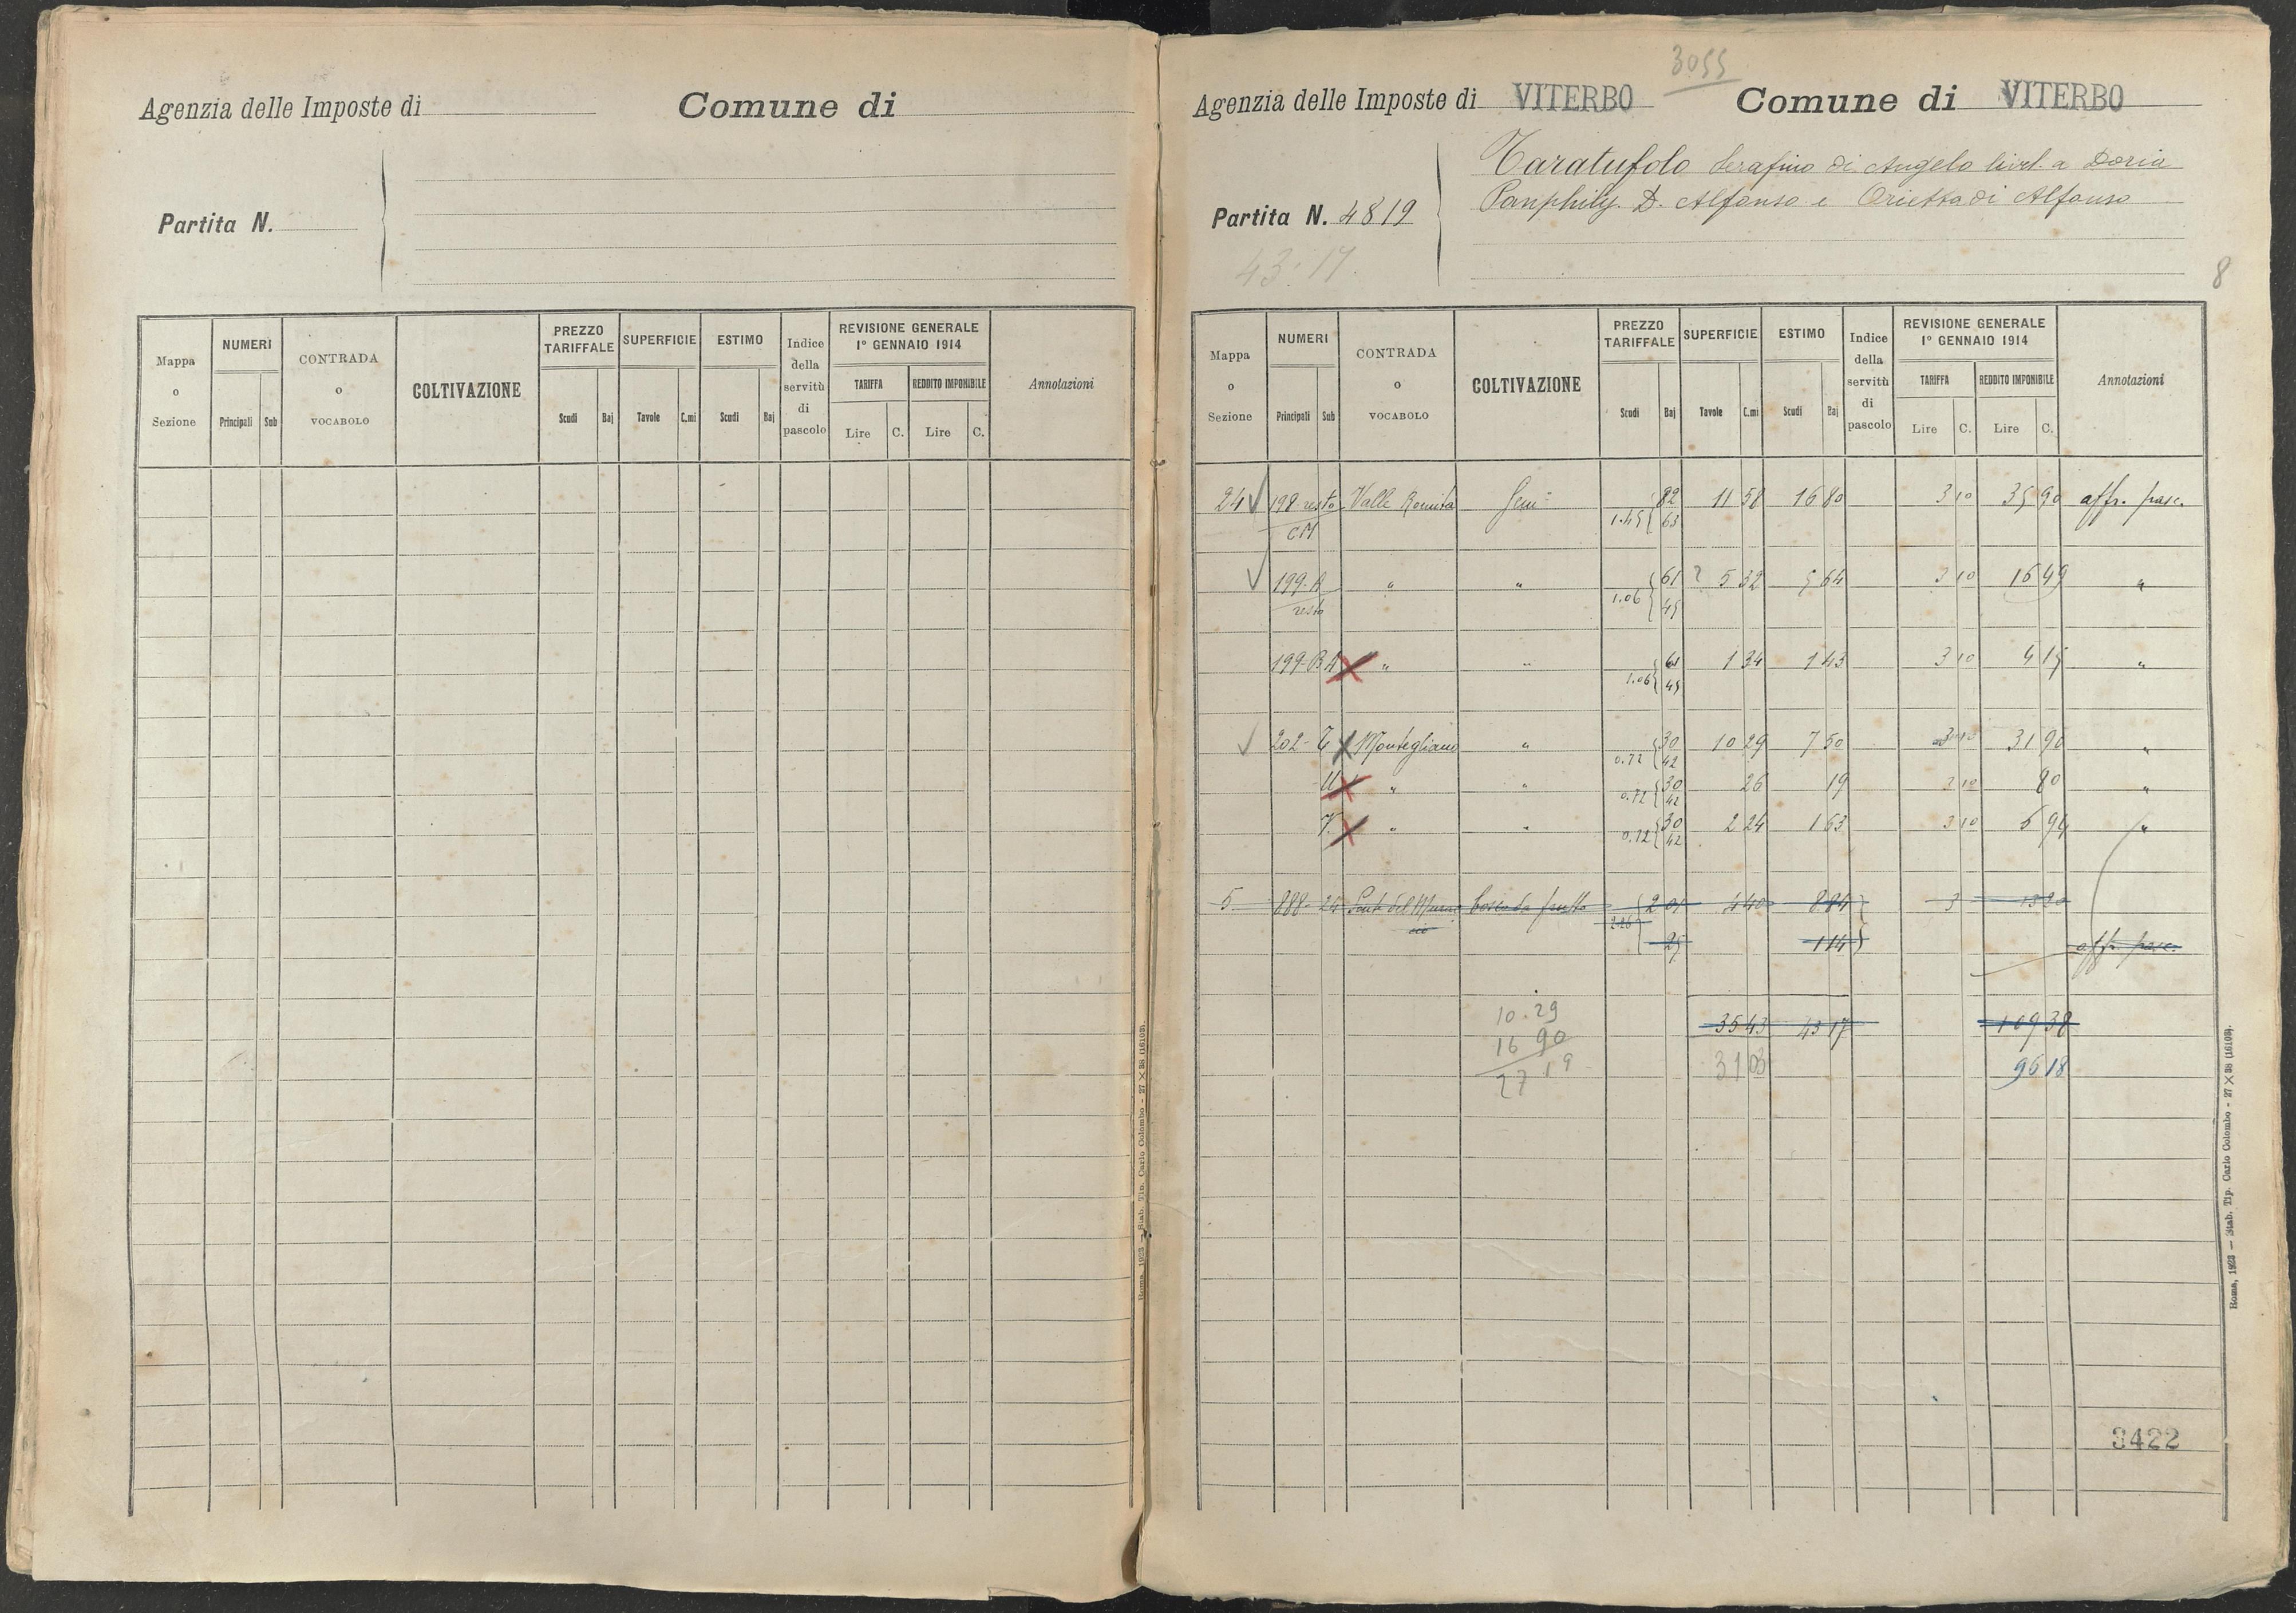 Agenzia delle Imposte di
Comune di
Partita N.
Mappa o Sezione
NUMERI
Principali Sub
CONTRADA o VOCABOLO
COLTIVAZIONE
PREZZO TARIFFALE
Scudi Baj
SUPERFICIE
Tavole C.mi
ESTIMO
Scudi Baj
Indice della servitù di pascolo
REVISIONE GENERALE
1° GENNAIO 1914
TARIFFA
Lire C.
REDDITO IMPONIBILE
Lire C.
Annotazioni
Roma, 1923 — Stab. Tip. Carlo Colombo - 27 × 38 (16103).
3055
Agenzia delle Imposte di VITERBO
Comune di VITERBO
Partita N. 4819
Taratufolo Serafino di Angelo livel. a Doria
Panphily. D. Alfonso e Orietta di Alfonso
43:17.
8
Mappa o Sezione
NUMERI
Principali Sub
CONTRADA o VOCABOLO
COLTIVAZIONE
PREZZO TARIFFALE
Scudi Baj
SUPERFICIE
Tavole C.mi
ESTIMO
Scudi Baj
Indice della servitù di pascolo
REVISIONE GENERALE
1° GENNAIO 1914
TARIFFA
Lire C.
REDDITO IMPONIBILE
Lire C.
Annotazioni
24 198 resto Valle Romita Sem 82 11 58 16 80 3 10 35 90 affr. pasc.
CM 1.45 63
199-A " " 61 5 32 5 64 3 10 16 49 "
resto 1.06 45
199-B " " 61 1 34 1 43 3 10 4 15 "
1.06 45
202- Montegliano " 30 10 29 7 50 3 10 31 90 "
0.72 42
U " " 30 26 19 3 10 80 "
0.72 42
V " " 30 2 24 1 63 3 10 6 94 "
0.72 42
5 888- 24 bosco da frutto 2 01 4 40 8 84 3 13 20
2.26 25 1 14 affr. pasc.
10.29
16 90
27 19
35 43 43 17 109 38
31 03 96 18
3422
Roma, 1923 — Stab. Tip. Carlo Colombo - 27 × 38 (16103).